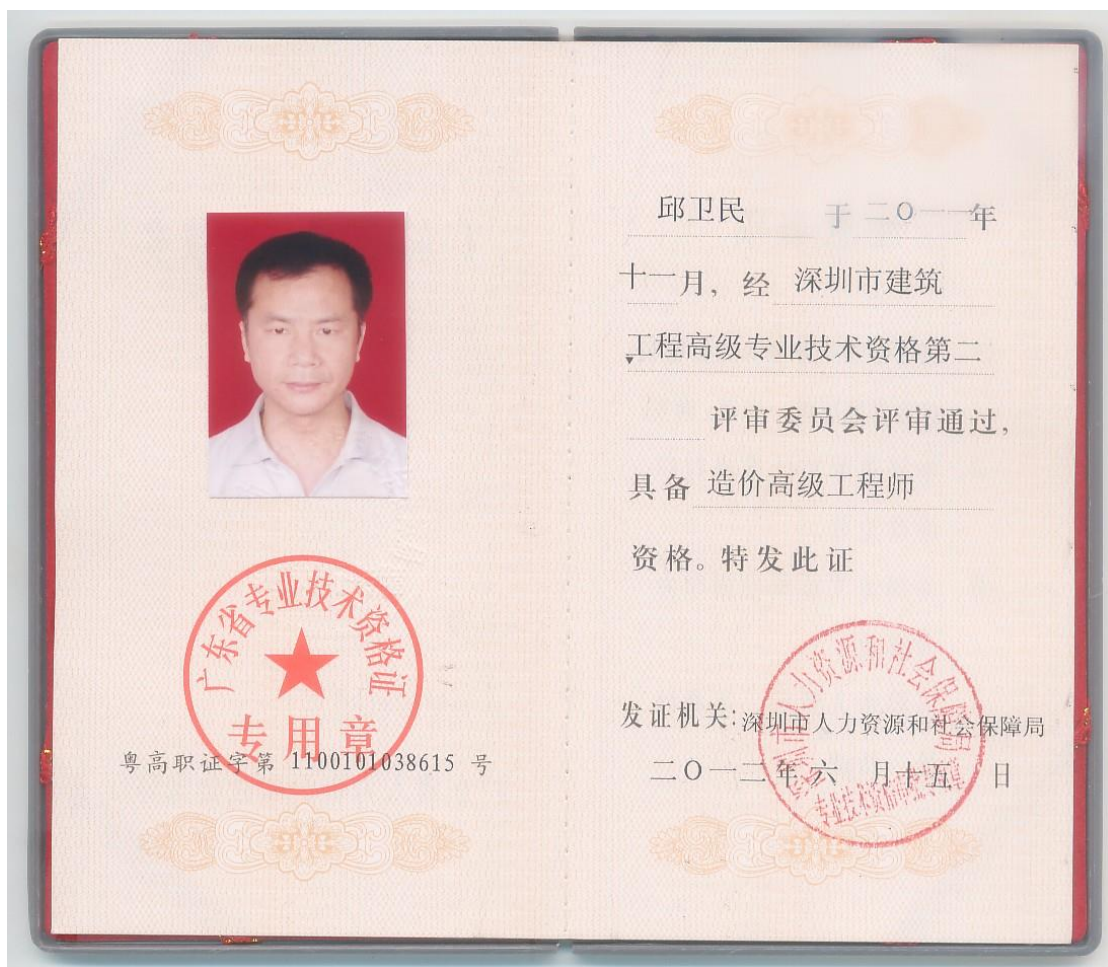 广东省专业技术资格证
专用章
粤高职证字第 1100101038615 号
邱卫民 于 二〇一一年
十一月, 经 深圳市建筑
工程高级专业技术资格第二
评审委员会评审通过,
具备 造价高级工程师
资格。特发此证
深圳市人力资源和社会保障局
发证机关:深圳市人力资源和社会保障局
二〇一二年六 月十五 日